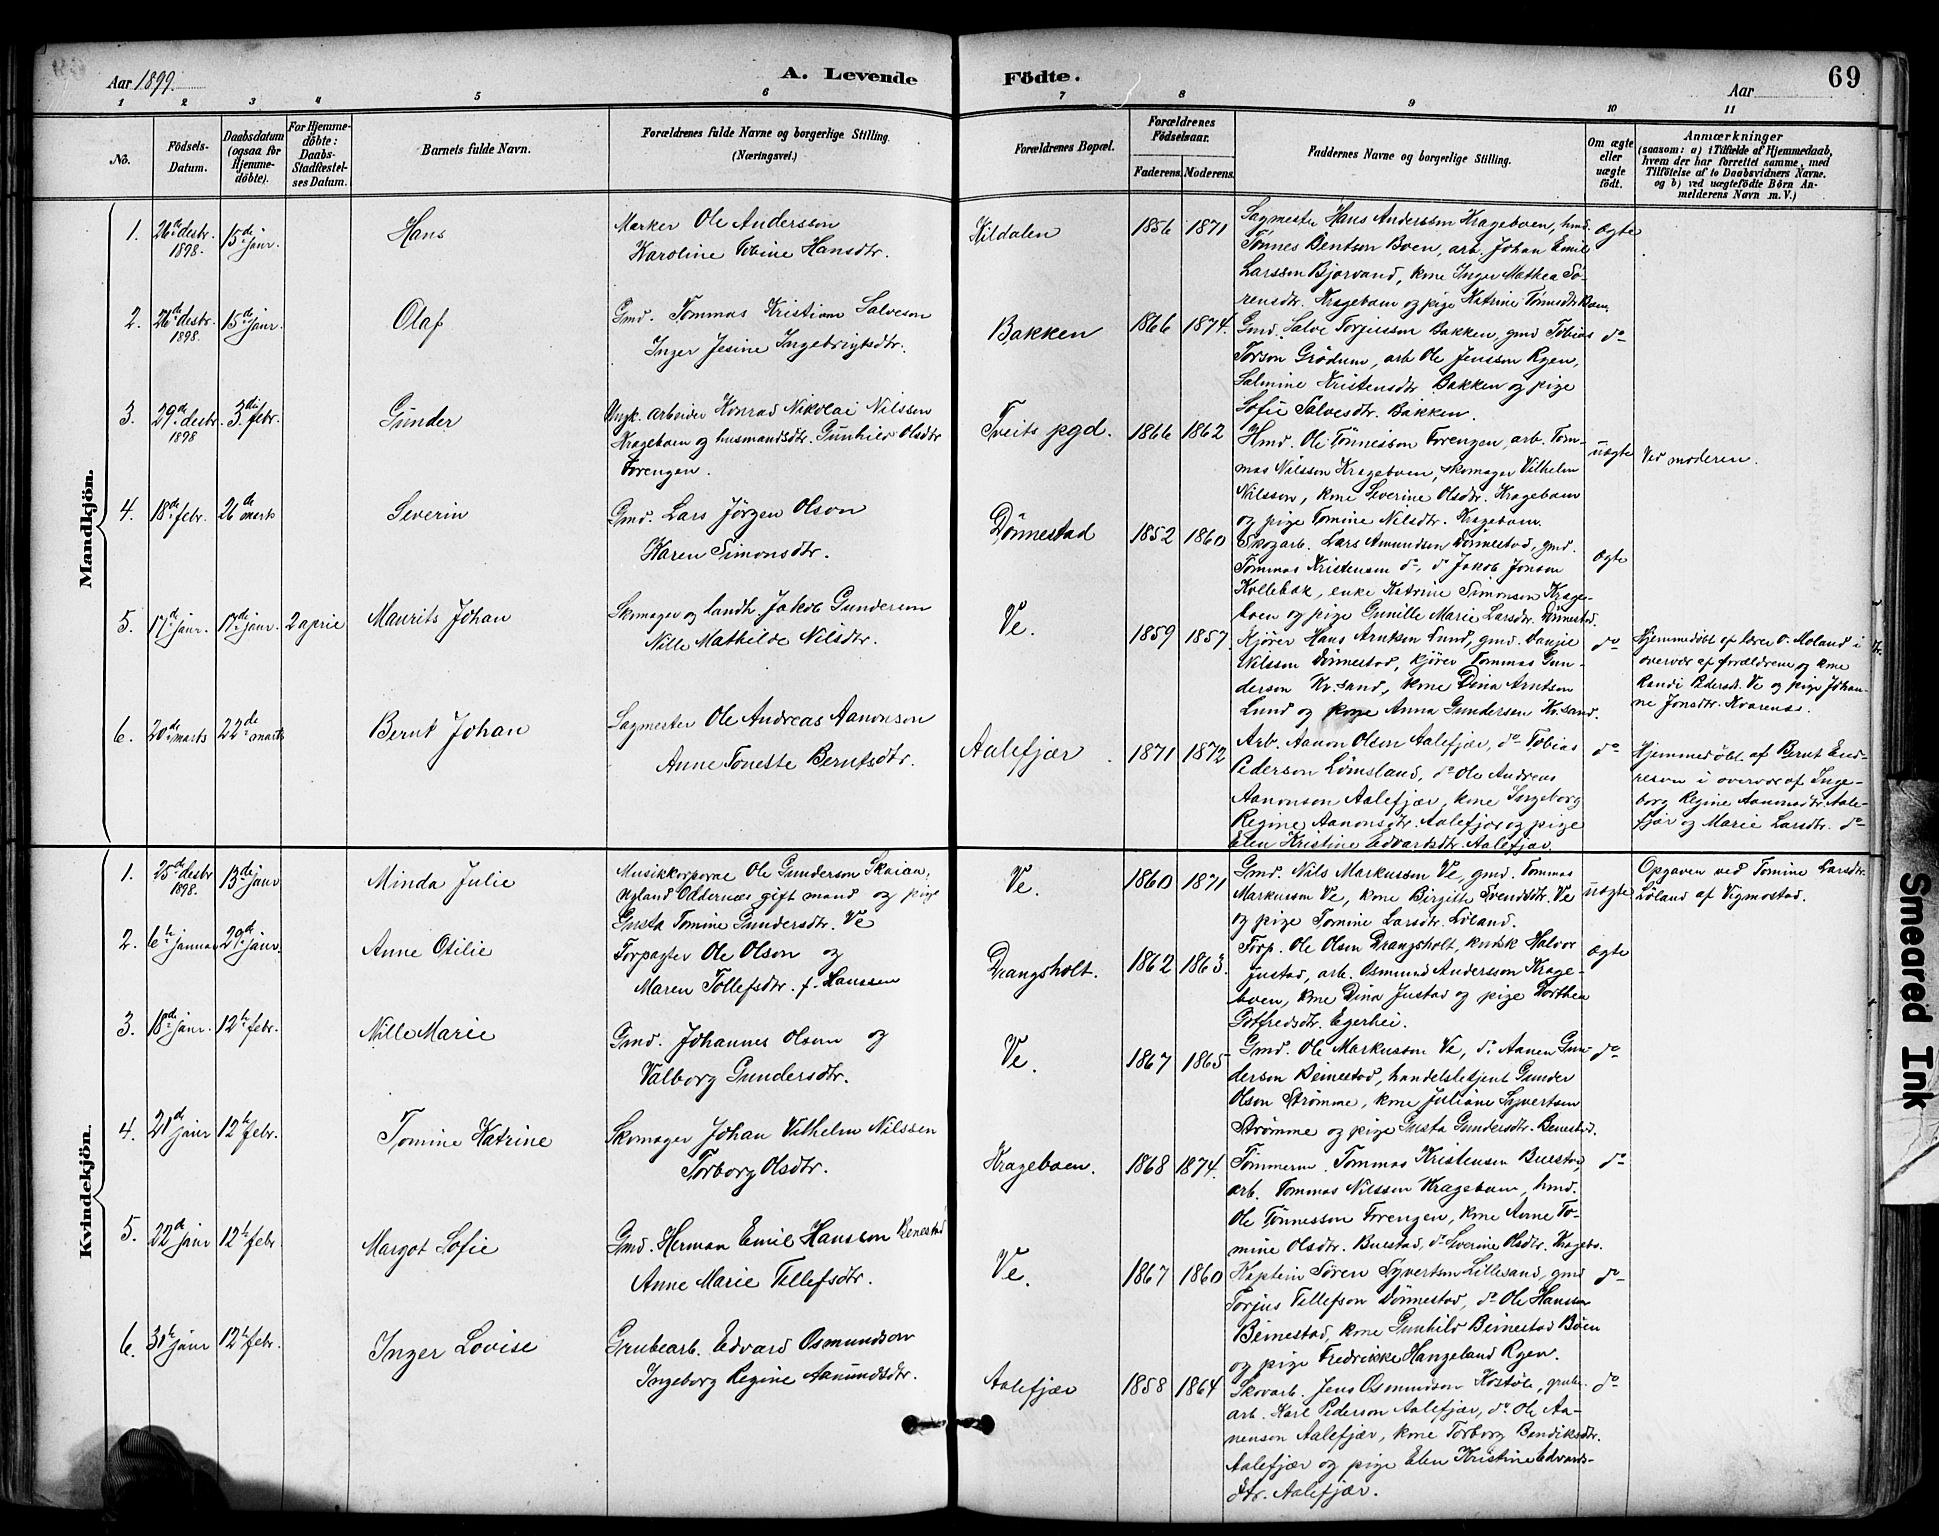 Aar 1899.
A. Levende
Födte.
Aar
69
1 2 3 4 5 6 7 8 9 10 11
No.
Födsels-
Datum.
Daabsdatum
(ogsaa for
Hjemme-
döbte).
For Hjemme-
döbte:
Daabs-
Stadfæstel-
ses Datum.
Barnets fulde Navn.
Forældrenes fulde Navne og borgerlige Stilling.
(Næringsvei.)
Forældrenes Bopæl.
Forældrenes
Födselsaar.
Faderens. Moderens.
Faddernes Navne og borgerlige Stilling.
Om ægte
eller
uægte
födt.
Anmærkninger
(saasom: a) i Tilfælde af Hjemmedaab,
hvem der har forrettet samme, med
Tilföielse af to Daabsvidners Navne.
og b) ved uægtefödte Börn An-
melderens Navn m. V.)
Mandkjön.
1. 26de desbr. 1898. 15de janr. Hans
Marker Ole Anderssen
Karoline Tobine Hansdtr.
Kildalen 1856 1871
Sagmester Hans Anderssøn Krageboen, hmd.
Tønnes Bentson Boen, arb. Johan Emil
Larssen Bjorvand, kone Inger Mathea Sø-
rensdtr. Krageboen og pige Katrine Tønnesdtr Boen.
ægte
2. 26de desbr. 1898. 15de janr. Olaf
Gmd. Tommas Kristian Salveson
Inger Jesine Ingebrigtsdtr.
Bakken 1866 1874.
Gmd. Salve Torjussen Bakken, gmd Tobias
Torson Grødum, arb Ole Jenssen Ryen,
Salmine Kristensdtr Bakken og pige
Sofie Salvesdtr. Bakken.
do
3. 29de desbr 1898 3die febr. Gunder
Ungk. arbeider Konrad Nikolai Nilssen
Krageboen og husmandsdtr. Gunhild Olsdtr
Forengen.
Tveits pgd. 1866 1862
Hmd. Ole Tønnesson Forengen, arb. Tom-
mas Nilssen Krageboen, skomager Vilhelm
Nilsson, kone Severine Olsdtr. Krageboen
og pige Tomine Nilsdtr. Krageboen.
uægte
Ved moderen.
4. 18de febr. 26de marts Severin
Gmd. Lars Jörgen Olson
Karen Simonsdtr.
Dønnestad 1852 1860
Skogarb. Lars Amundsen Dønnestad, gmd.
Tommas Kristensen do, do Jakob Jonson
Kollebak, enke Katrine Simonsen Krage-
boen og pige Gunille Marie Larsdtr. Dønnestad.
ægte
5. 17de janr. 17de janr. 2 april Maurits Johan
Skomager og landh. Jakob Gunderson
Nille Mathilde Nilsdtr.
Ve. 1859 1857.
Kjører Hans Arntsen Lund, gmd. Daniel
Nilssen Dønnestad, kjører Tommas Gun-
derson Kr.sand, kone Dina Arntsen
Lund og pige Anna Gundersen Kr.sand.
do
Hjemmedøbt af lærer O. Moland i
overvær af forældrene og kone
Randi Pedersdr. Ve og pige Johan-
ne Jonsdtr. Kvarenes.
6. 20de marts 22de marts Bernt Johan
Sagmester Ole Andreas Aanonson
Anne Toneste Berntsdtr.
Aalefjær. 1871 1872
Arb. Aanon Olson Aalefjær, do Tobias
Pederson Lømsland, do Ole Andreas
Aanonson Aalefjær, kone Ingeborg
Regine Aanonsdtr. Aalefjær og pige
Elen Kristine Edvardsdtr Aalefjær.
do
Hjemmedøbt af Bernt End-
reson i overvær af Inge-
borg Regine Aanonsdtr. Aale-
fjær og Marie Larsdtr. do
Kvindekjön.
1. 25de desbr 1898. 13de janr Minda Julie
Musikkorporal Ole Gunderson Skaiaa,
Nyland Oddernæs gift mand og pige
Gusta Tomine Gundersdtr. Ve
Ve. 1860 1871
Gmd. Nils Markussen Ve, gmd. Tommas
Markussen Ve, kone Birgitte Svendsdtr. Ve
og pige Tomine Larsdtr. Løland.
uægte
Opgaven ved Tomine Larsdtr.
Løland af Vigmostad.
2. 6te januar 29de janr. Anne Otilie
Forpagter Ole Olson og
Maren Tollefsdtr. f. Hanssen
Drangsholt. 1862 1863.
Forp. Ole Olsen Drangsholt, kudsk Halvor
Justad, arb. Osmund Anderssen Krage-
boen, kone Dina Justad og pige Dorthea
Gotfredsdtr. Egerhei.
ægte
3. 18de janr 12te febr. Nille Marie
Gmd. Johannes Olsen og
Valborg Gundersdtr.
Ve. 1867 1865
Gmd. Ole Markusson Ve, do Aanen Gun-
derson Beinestad, handelsbetjent Gunder
Olson Strømme, kone Juliane Syvertsen
Strømme og pige Gusta Gundersdtr. Benestad.
do
4. 21de janr 12te febr. Tomine Katrine
Skomager Johan Vilhelm Nilssen
Torborg Olsdtr.
Krageboen. 1868 1874.
Tømmerm. Tommas Kristensen Buestad,
arb. Tommas Nilssen Krageboen, hmd.
Ole Tønnesson Forengen, kone Anne To-
mine Olsdtr. Buestad, do Severine Olsdtr. Kragebo.
do
5. 22de janr 12te febr Margot Sofie
Gmd. Herman Emil Hansson Benestad
Anne Marie Tellefsdtr.
Ve. 1867 1860
Kaptein Søren Syvertsen Lillesand, gmd
Torjus Tellefson Dønnestad, do Ole Hansson
Beinestad, kone Gunhild Beinestad Bøen
og pige Fredrikke Hangeland Ryen.
do
6. 31te janr 12te febr. Inger Lovise
Grubearb. Edvard Osmundson
Ingeborg Regine Aanundsdtr.
Aalefjær 1858 1864
Skovarb. Jens Osmundson Kostøl, grube-
arb. Karl Pederson Aalefjær, do Ole Aa-
nenson Aalefjær, kone Torborg Bendiksdtr.
Aalefjær og pige Elen Kristine Edvards-
dtr. Aalefjær.
do
Smeared Ink